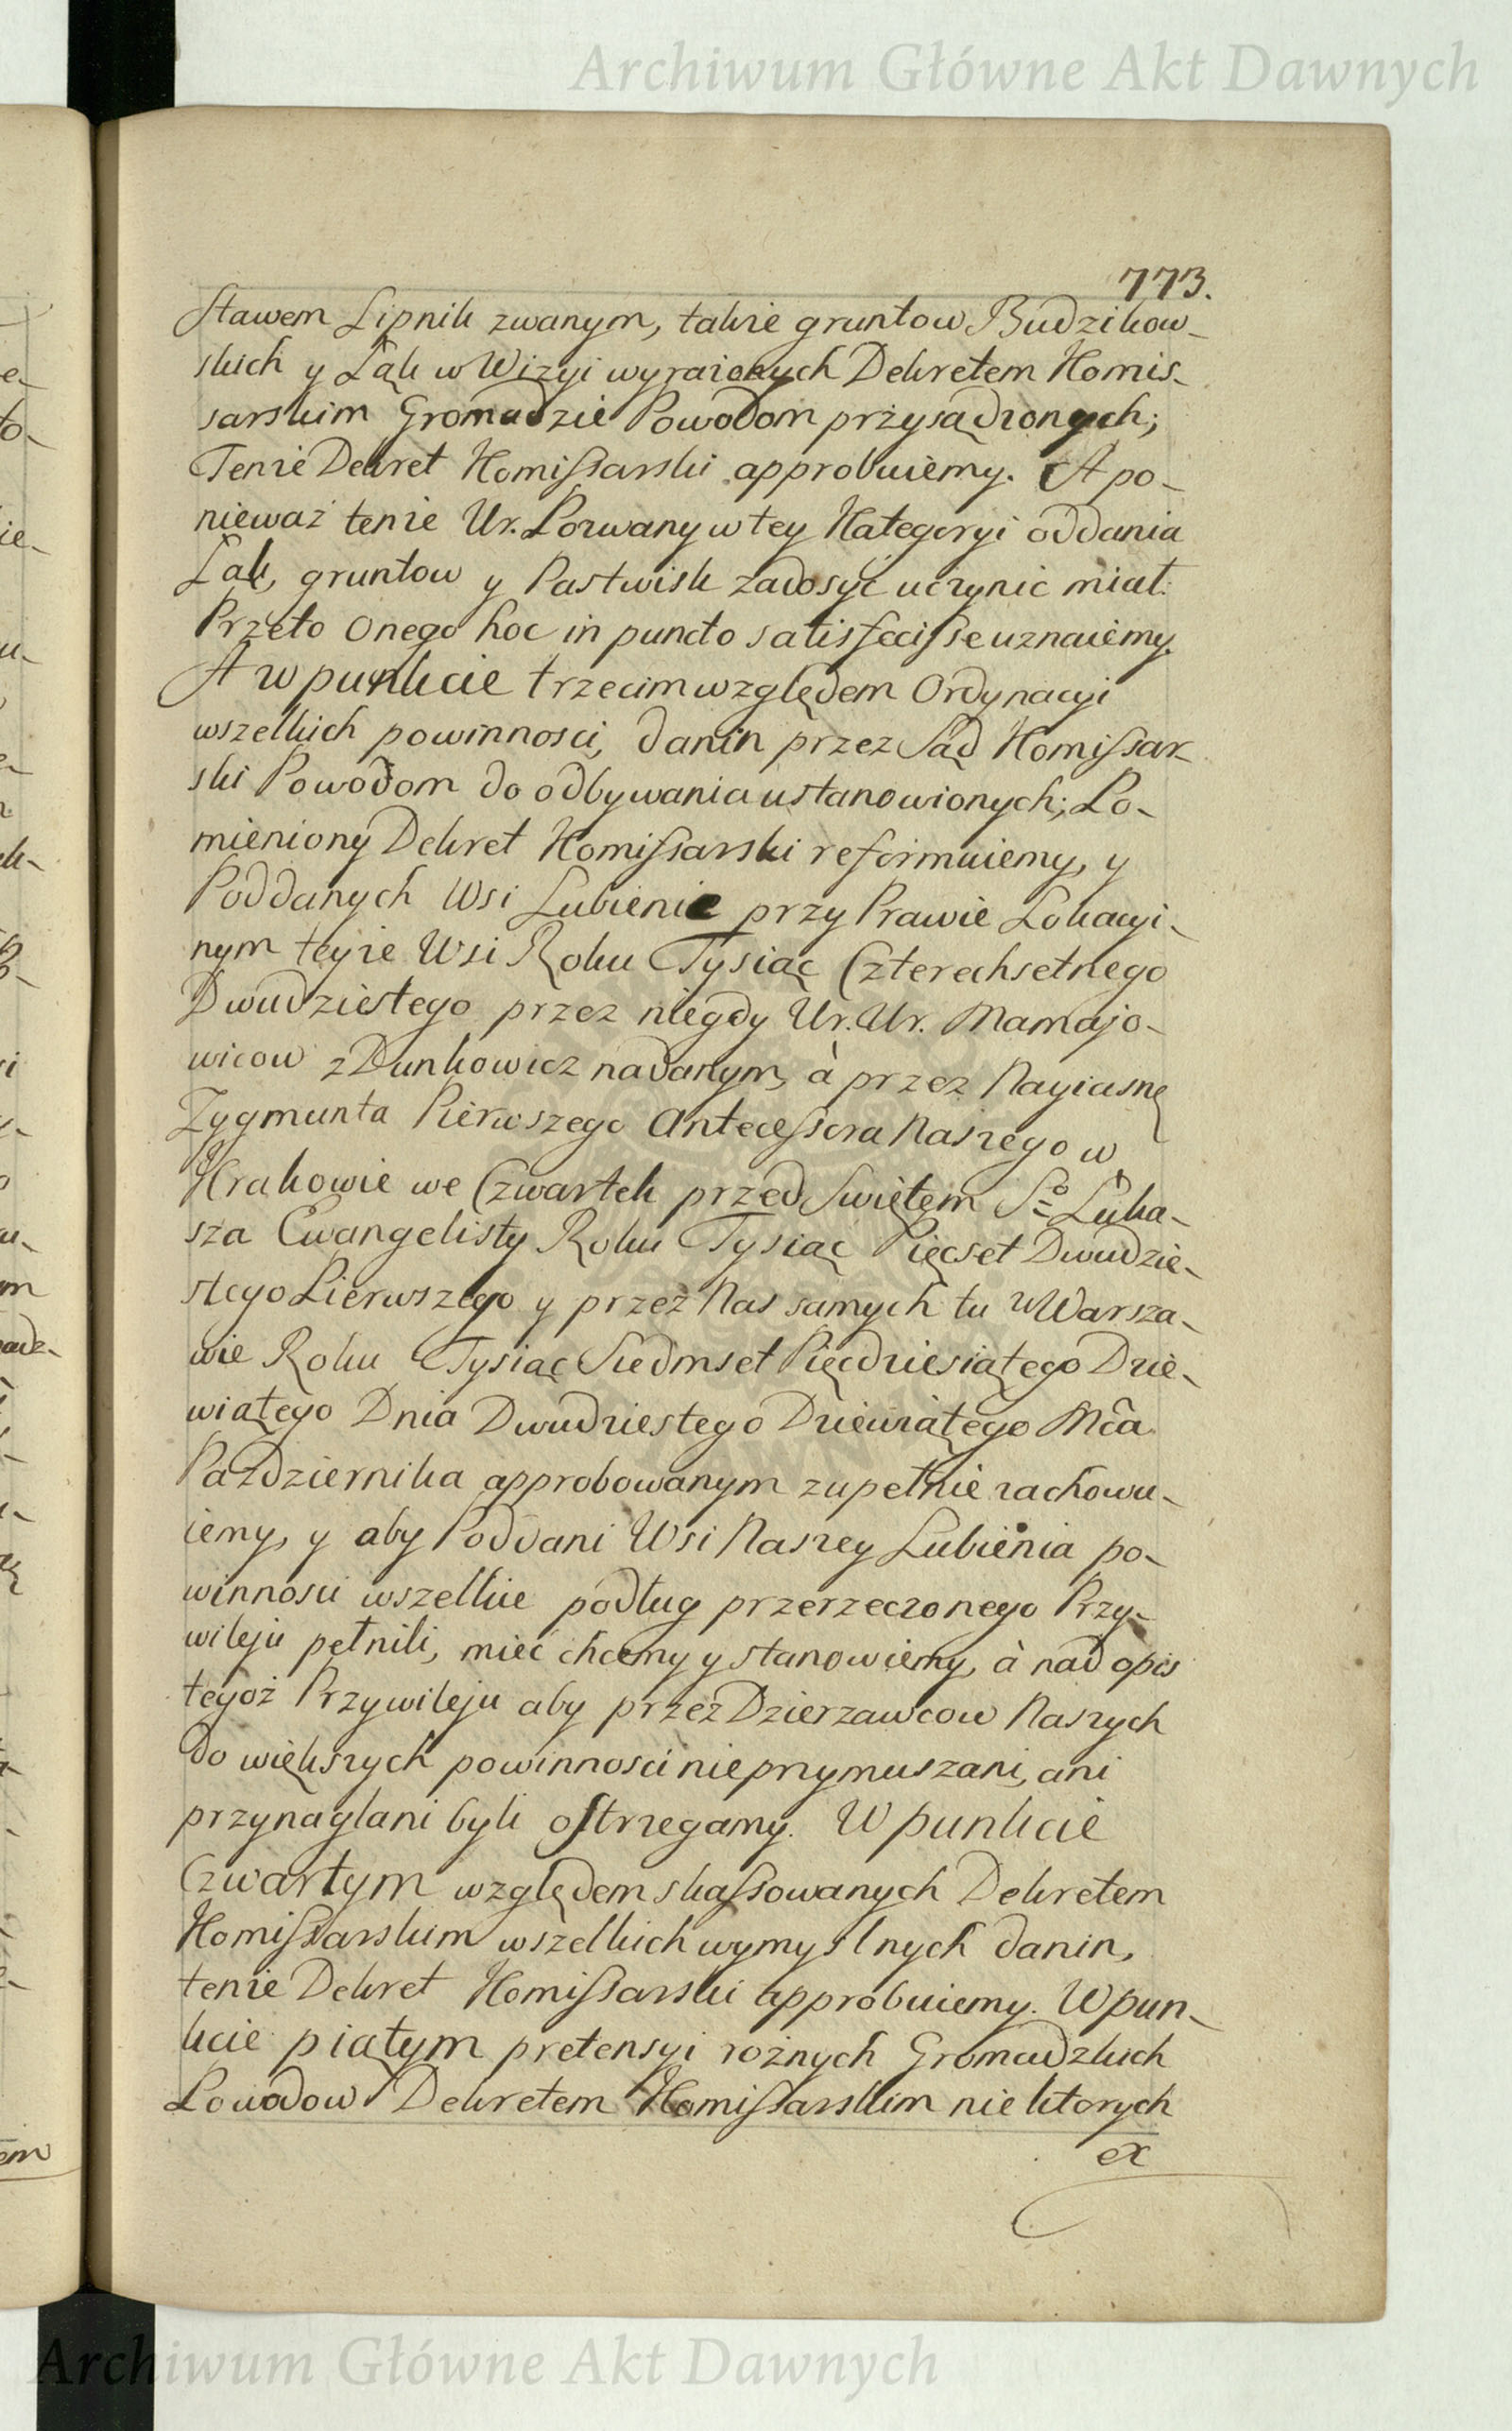 Archiwum Główne Akt Dawnych
773.
Stawem Lipnik zwanym, także gruntow Budzikow-
skich y Łąk w Wizyi wyrażonych Dekretem Komis-
sarskim Gromadzie Powodom przysądzonych;
Tenże Dekret Komissarski approbuiemy. A po-
nieważ tenże Ur. Pozwany w tey Kategoryi oddania
Łąk, gruntow y Pastwisk zadosyć uczynić miał.
Przeto onego hoc in puncto satisfecisse uznaiemy.
A w punkcie trzecim względem Ordynacyi
wszelkich powinnosci, danin przez Sąd Komissar-
ski Powodom do odbywania ustanowionych; Po-
mieniony Dekret Komissarski reformuiemy, y
Poddanych Wsi Lubienie przy Prawie Lokacyi-
nym teyże Wsi Roku Tysiąc Czterechsetnego
Dwudziestego przez niegdy Ur. Ur. Mamajo-
wicow z Dunkowicz nadanym, à przez Nayiasnę
Zygmunta Pierwszego Antecessora Naszego w
Krakowie we Czwartek przed Swiętem So Łuka-
sza Ewangelisty Roku Tysiąc Pięcset Dwudzie-
stego Pierwszego y przez Nas samych tu w Warsza-
wie Roku Tysiąc Siedmset Pięcdziesiątego Dzie-
wiątego Dnia Dwudziestego Dziewiątego Mca
Pazdziernika approbowanym zupełnie zachowu-
iemy, y aby Poddani Wsi Naszey Lubienia po-
winnosci wszelkie podług przerzeczonego Przy-
wileju pełnili, mieć chcemy y stanowiemy, à nad opis
tegoż Przywileju aby przez Dzierzawcow Naszych
do większych powinnosci nieprzymuszani, ani
przynaglani byli ostrzegamy. W punkcie
Czwartym względem skassowanych Dekretem
Komissarskim wszelkich wymyslnych danin,
tenże Dekret Komissarski approbuiemy. W pun-
kcie piątym pretensyi rożnych Gromadzkich
Powodow Dekretem Komissarskim nie ktorych
ex
Archiwum Główne Akt Dawnych